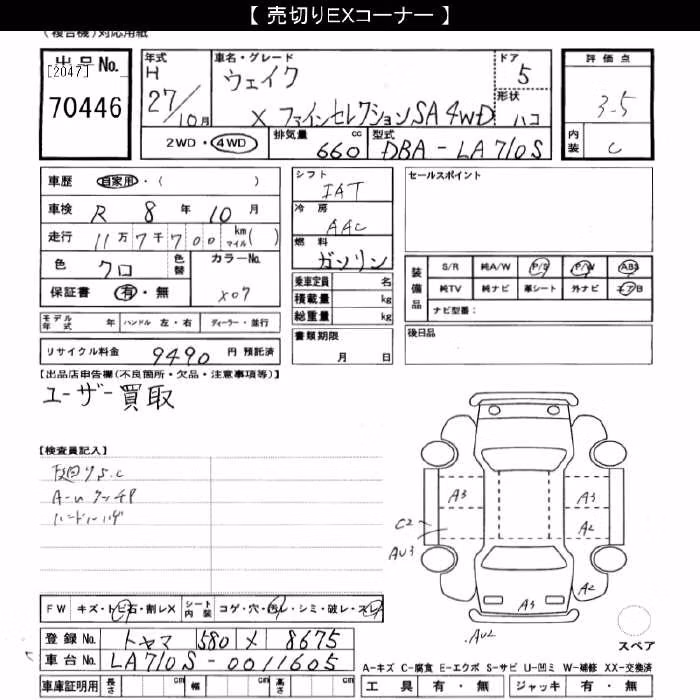 【 売切りEXコーナー 】
(複合機)対応用紙
出品No.
[2047]
70446
年式
H
27/10月
車名・グレード
ウェイク
X ファインセレクションSA 4WD
ドア
5
形状
ハコ
2WD・4WD
排気量
660
cc
型式
DBA-LA710S
評価点
3.5
内装
C
車歴 自家用・( )
車検 R 8 年 10 月
走行 11万7千700 km マイル ( )
色 クロ
色替
カラーNo.
X07
保証書 有・無
モデル年式 年 ハンドル 左・右 ディーラー・並行
リサイクル料金 9490 円 預託済
シフト
IAT
冷房
AAC
燃料
ガソリン
乗車定員 名
積載量 kg
総重量 kg
書類期限
月 日
セールスポイント
装備品
S/R 純A/W P/S P/W ABS
純TV 純ナビ 革シート 外ナビ エアB
ナビ型番:
後日品
【出品店申告欄(不良箇所・欠品・注意事項等)】
ユーザー買取
【検査員記入】
A3
A3
C2
AU3
A2
A2
A3
AU2
スペア
FW キズ・トビ石・割レX シート内装 コゲ・穴・汚レ・シミ・破レ・スレ
登録No. トヤマ 580 X 8675
車台No. LA710S-0011605
車庫証明用 長さ cm 幅 cm 高さ cm
A-キズ C-腐食 E-エクボ S-サビ U-凹ミ W-補修 XX-交換済
工具 有・無 ジャッキ 有・無